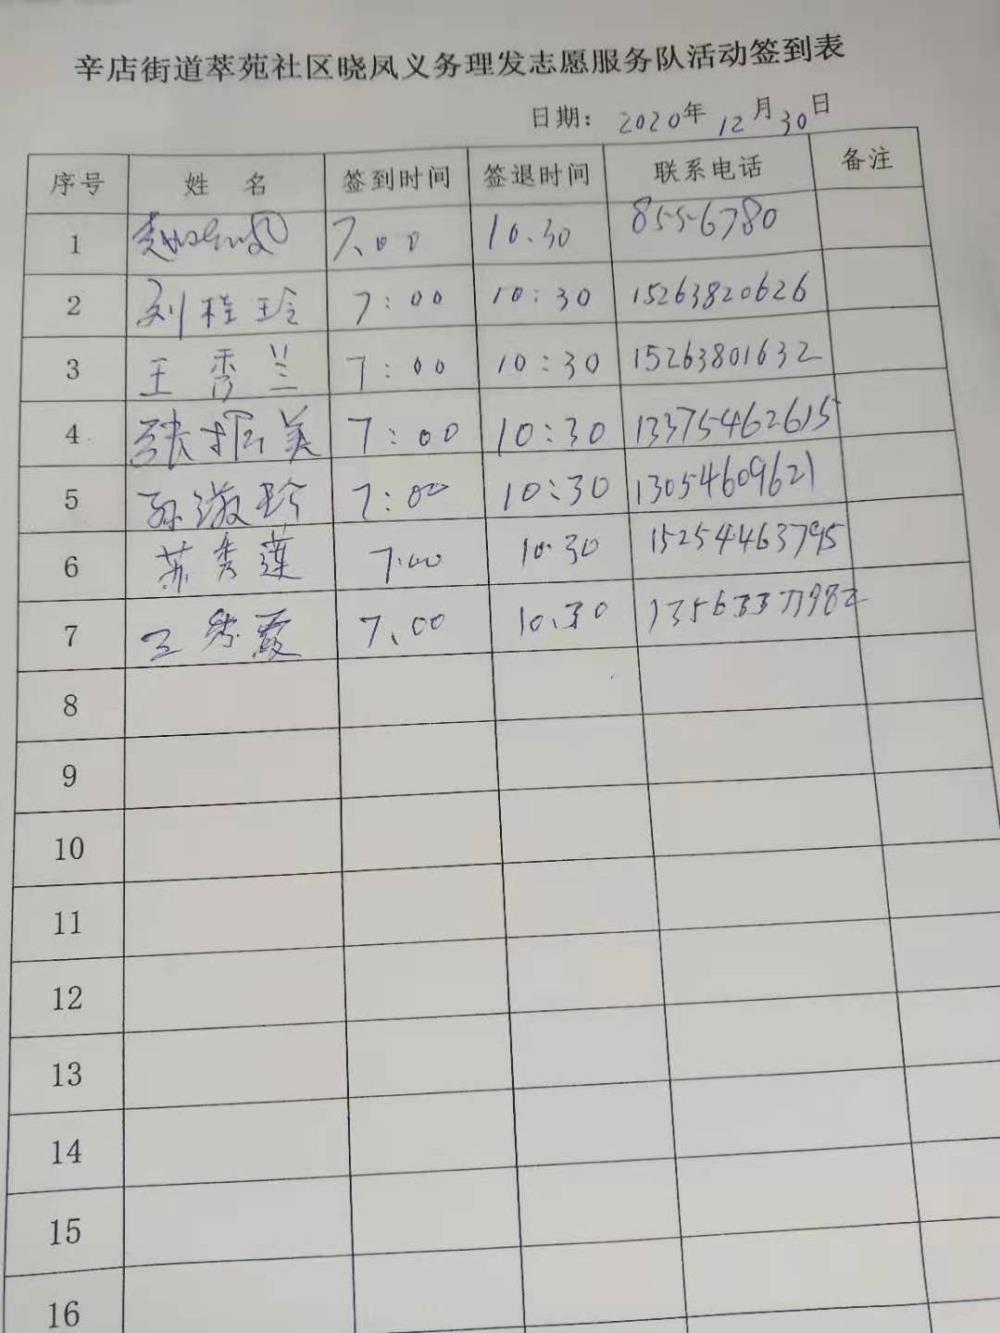 辛店街道萃苑社区晓凤义务理发志愿服务队活动签到表
日期: 2020年 12月 30日
序号 姓 名 签到时间 签退时间 联系电话 备注
1 7.00 10.30 8556780
2 刘桂玲 7:00 10:30 15263820626
3 王秀兰 7:00 10:30 15263801632
4 张振美 7:00 10:30 13375462615
5 孙淑珍 7:00 10:30 13054609621
6 苏秀莲 7.00 10.30 15254463795
7 王秀霞 7.00 10.30
8
9
10
11
12
13
14
15
16